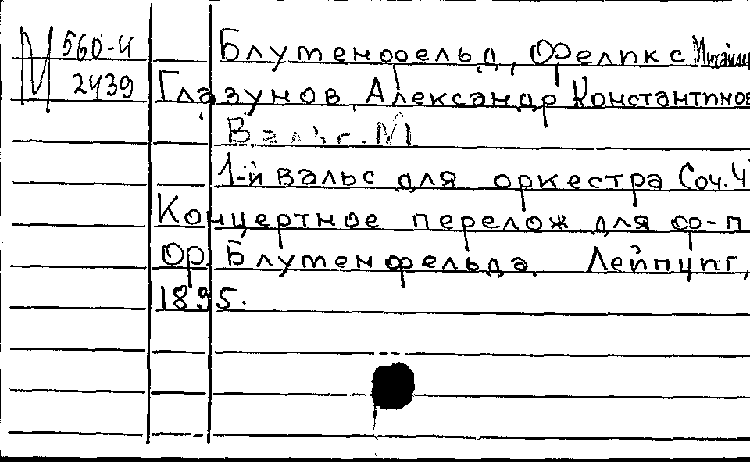 М 560-4
2439
Блуменфельд, Феликс Михайл
Глазунов, Александр Константинов
Вальс. М
1-й вальс для оркестра Соч. 4
Концертное перелож для ф-п
Ф. Блуменфельда. Лейпциг,
1895.